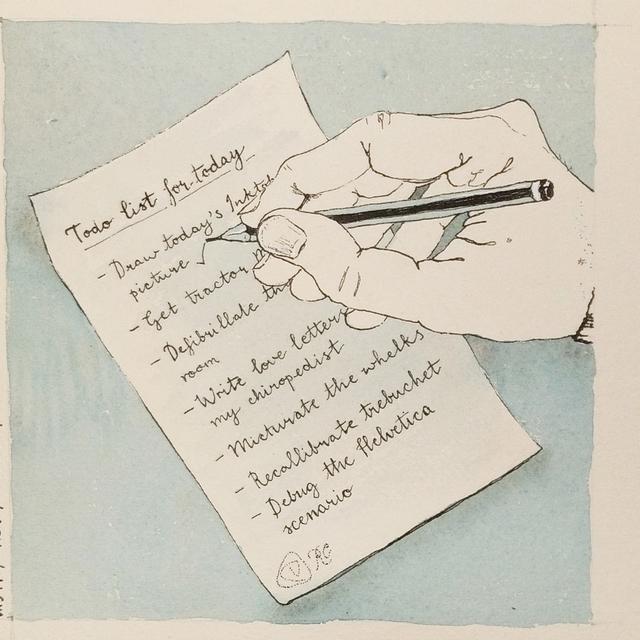 Todo list for today
- Draw today's
picture
- Get tractor
- Defibrillate
room
- Write love letters
my chiropodist
- Micturate the whelks
- Recallibrate trebuchet
- Debug the Helvetica
scenario